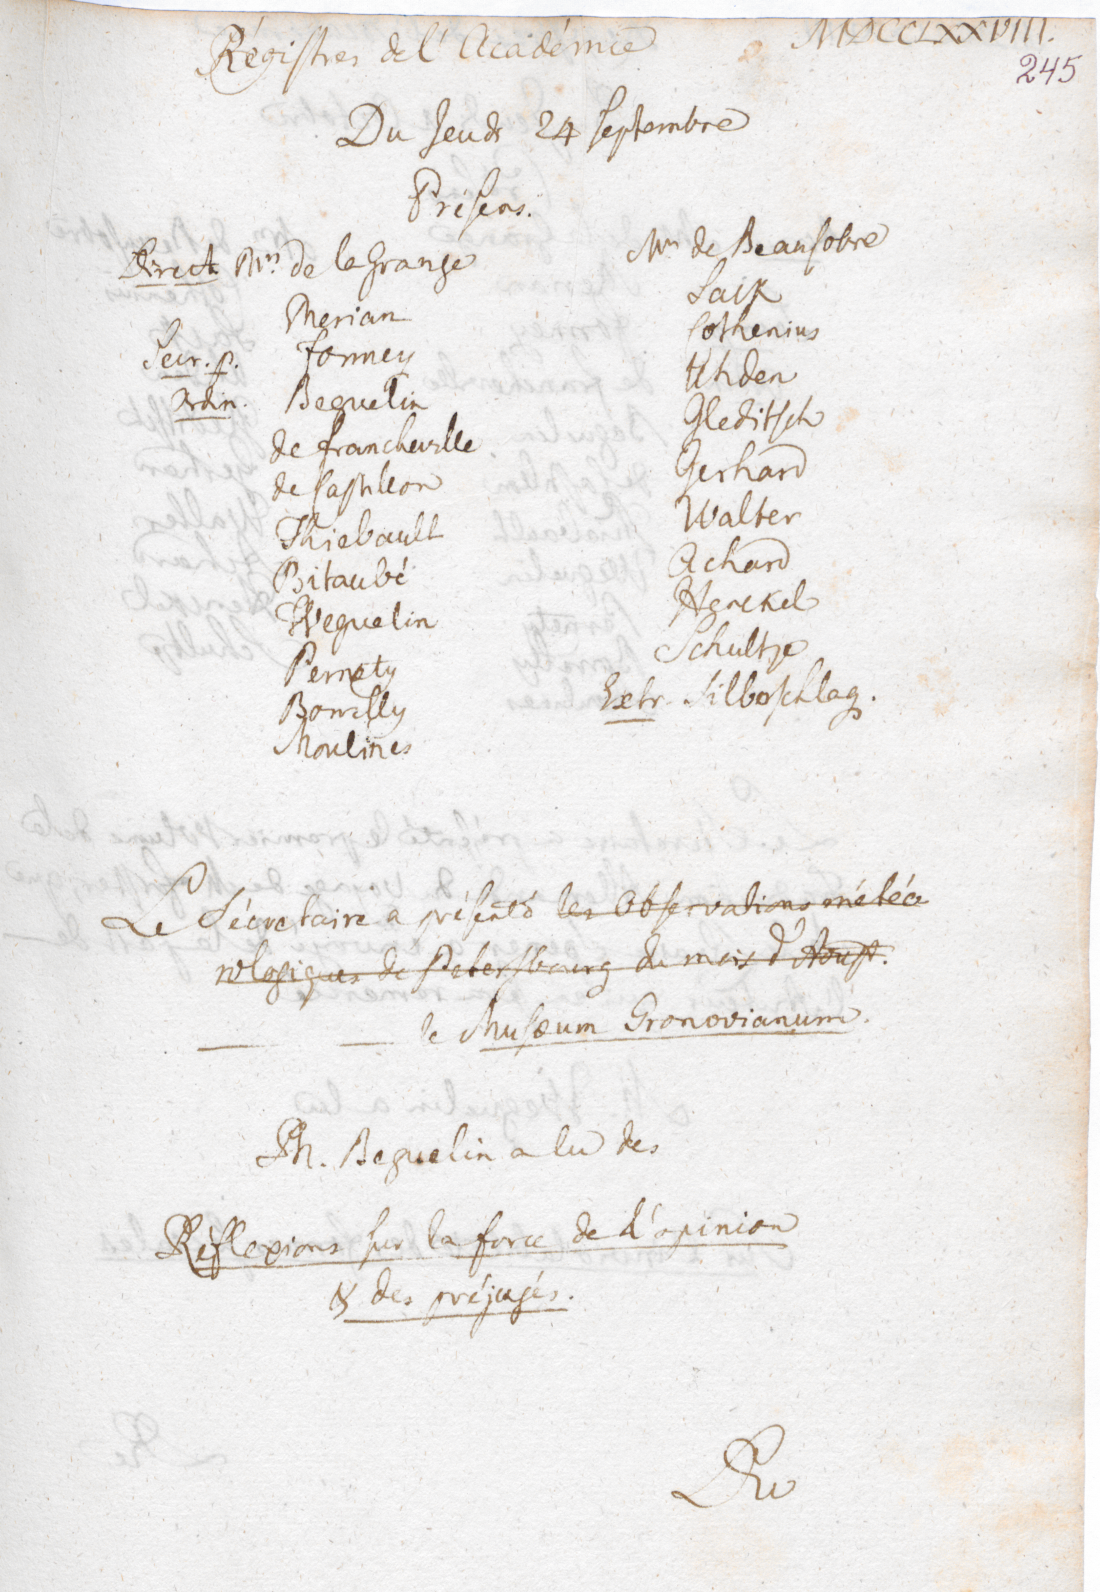 Régistres de l'Académie
MDCCLXXVIII.
245
Du Jeudi 24 Septembre
Présens.
Direct. Mrs de la Grange
Merian
Secr. p. Formey
Ordin. Beguelin
de Francheville
de Castillon
Thiebault
Bitaubé
Weguelin
Pernety
Borrelly
Moulines
Mrs de Beausobre
Sack
Cothenius
Uhden
Gleditsch
Gerhard
Walter
Achard
Henckel
Schultze
Extr. Silberschlag.
Le Sécretaire a présenté les Observations météo
rologiques de Petersbourg du mois d'Aoust.
le Musæum Gronovianum.
M. Beguelin a lu des
Réflexions sur la force de l'opinion
& des préjugés.
Du